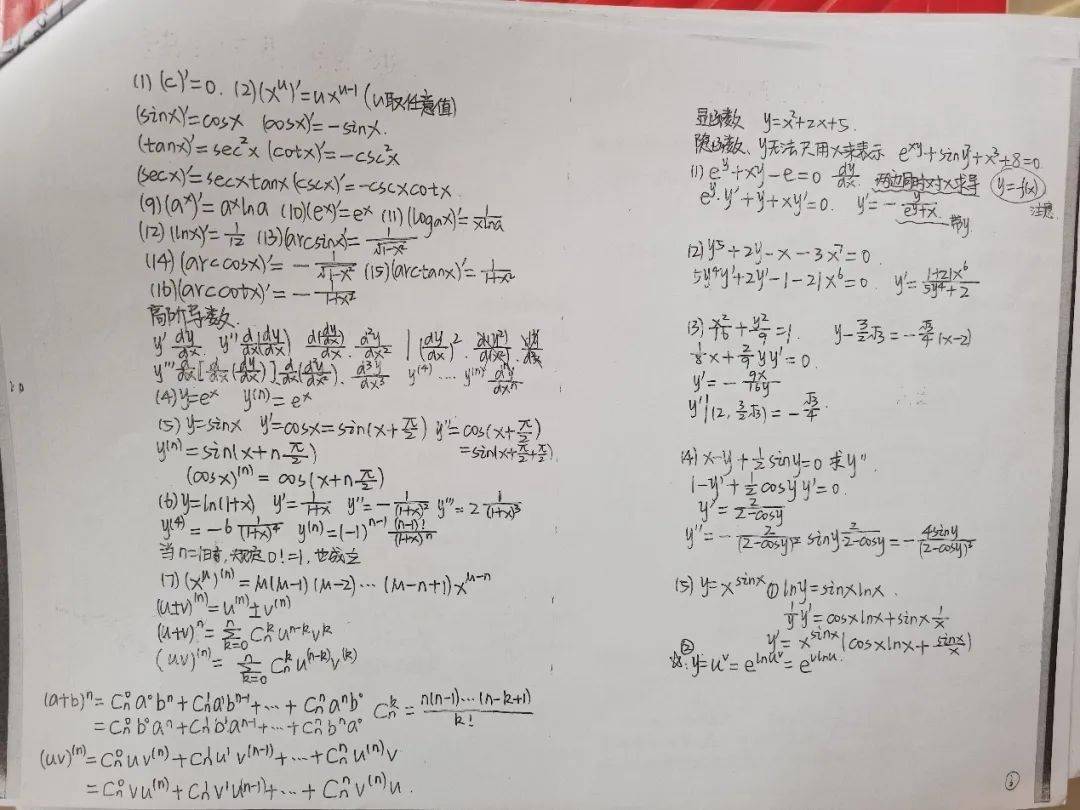 (1) (c)'=0. (2)(x^u)'=ux^{u-1} (u取任意值)
(sinx)'=cosx (cosx)'=-sinx.
(tanx)'=sec²x (cotx)'=-csc²x
(secx)'=secxtanx (cscx)'=-cscxcotx.
(9)(a^x)'=a^x lna (10)(e^x)'=e^x (11)(logax)'=1/(xlna)
(12)(lnx)'=1/12 (13)(arcsinx)'=1/√(1-x²)
(14)(arccosx)'=-1/√(1-x²) (15)(arctanx)'=1/(1+x²)
(16)(arccotx)'=-1/(1+x²)
高阶导数.
y' dy/dx. y'' d/dx(dy/dx) d(dy/dx)/dx. d²y/dx² | (dy/dx)². d(y²)/d(x²).
y''' d/dx[d/dx(dy/dx)]. d/dx(d²y/dx²). d³y/dx³ y^{(4)} ... y^{(n)} d^n y/dx^n
(4) y=e^x y^{(n)}=e^x
(5) y=sinx y'=cosx=sin(x+π/2) y''=cos(x+π/2)
=sin(x+π/2+π/2)
y^{(n)}=sin(x+n·π/2)
(cosx)^{(n)}=cos(x+n·π/2)
(6) y=ln(1+x) y'=1/(1+x) y''=-1/(1+x)² y'''=2 1/(1+x)³
y^{(4)}=-6 1/(1+x)⁴ y^{(n)}=(-1)^{n-1} (n-1)!/(1+x)^n
当n=1时,规定0!=1,也成立
(7) (x^μ)^{(n)}=μ(μ-1)(μ-2)...(μ-n+1)x^{μ-n}
(u±v)^{(n)}=u^{(n)}±v^{(n)}
(u+v)^n=∑_{k=0}^{n} C_n^k u^{n-k}v^k
(uv)^{(n)}=∑_{k=0}^{n} C_n^k u^{(n-k)}v^{(k)}
(a+b)^n=C_n^0 a^0b^n+C_n^1 a^1b^{n-1}+...+C_n^n a^nb^0 C_n^k=n(n-1)...(n-k+1)/k!
=C_n^0 b^0a^n+C_n^1 b^1a^{n-1}+...+C_n^n b^na^0
(uv)^{(n)}=C_n^0 uv^{(n)}+C_n^1 u'v^{(n-1)}+...+C_n^n u^{(n)}v
=C_n^0 vu^{(n)}+C_n^1 v'u^{(n-1)}+...+C_n^n v^{(n)}u.
显函数 y=x²+2x+5.
隐函数、y无法只用x来表示 e^{xy}+siny+x³+8=0
(1) e^y+xy-e=0 dy/dx. 两边同时对x求导 y=f(x)
e^y·y'+y+xy'=0. y'=-y/(e^y+x). 带y 注意
(2) y⁵+2y-x-3x⁷=0
5y⁴y'+2y'-1-21x⁶=0 y'=(1+21x⁶)/(5y⁴+2)
(3) x²/16+y²/9=1 y-3/2√3=-√3/4(x-2)
1/8x+2/9yy'=0.
y'=-9x/16y
y'|(2, 3/2√3)=-√3/4
(4) x-y+1/2siny=0 求y''
1-y'+1/2cosy y'=0.
y'=2/(2-cosy)
y''=-2/(2-cosy)² siny 2/(2-cosy)=-4siny/(2-cosy)³
(5) y=x^{sinx} ① lny=sinxlnx.
1/y y'=cosxlnx+sinx 1/x
y'=x^{sinx}(cosxlnx+sinx/x)
② ☆:y=u^v=e^{lnu^v}=e^{vlnu}.